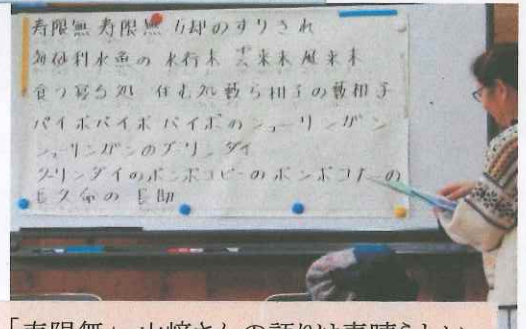 寿限無 寿限無 五却のすりきれ
海砂利水魚の 水行末 雲来末 風来末
食う寝る処 住む処 藪ら柑子の藪柑子
パイポパイポ パイポのシューリンガン
シューリンガンのグーリンダイ
グーリンダイのポンポコピーのポンポコナーの
長久命の長助
「寿限無」山﨑さんの語りは素晴らしい